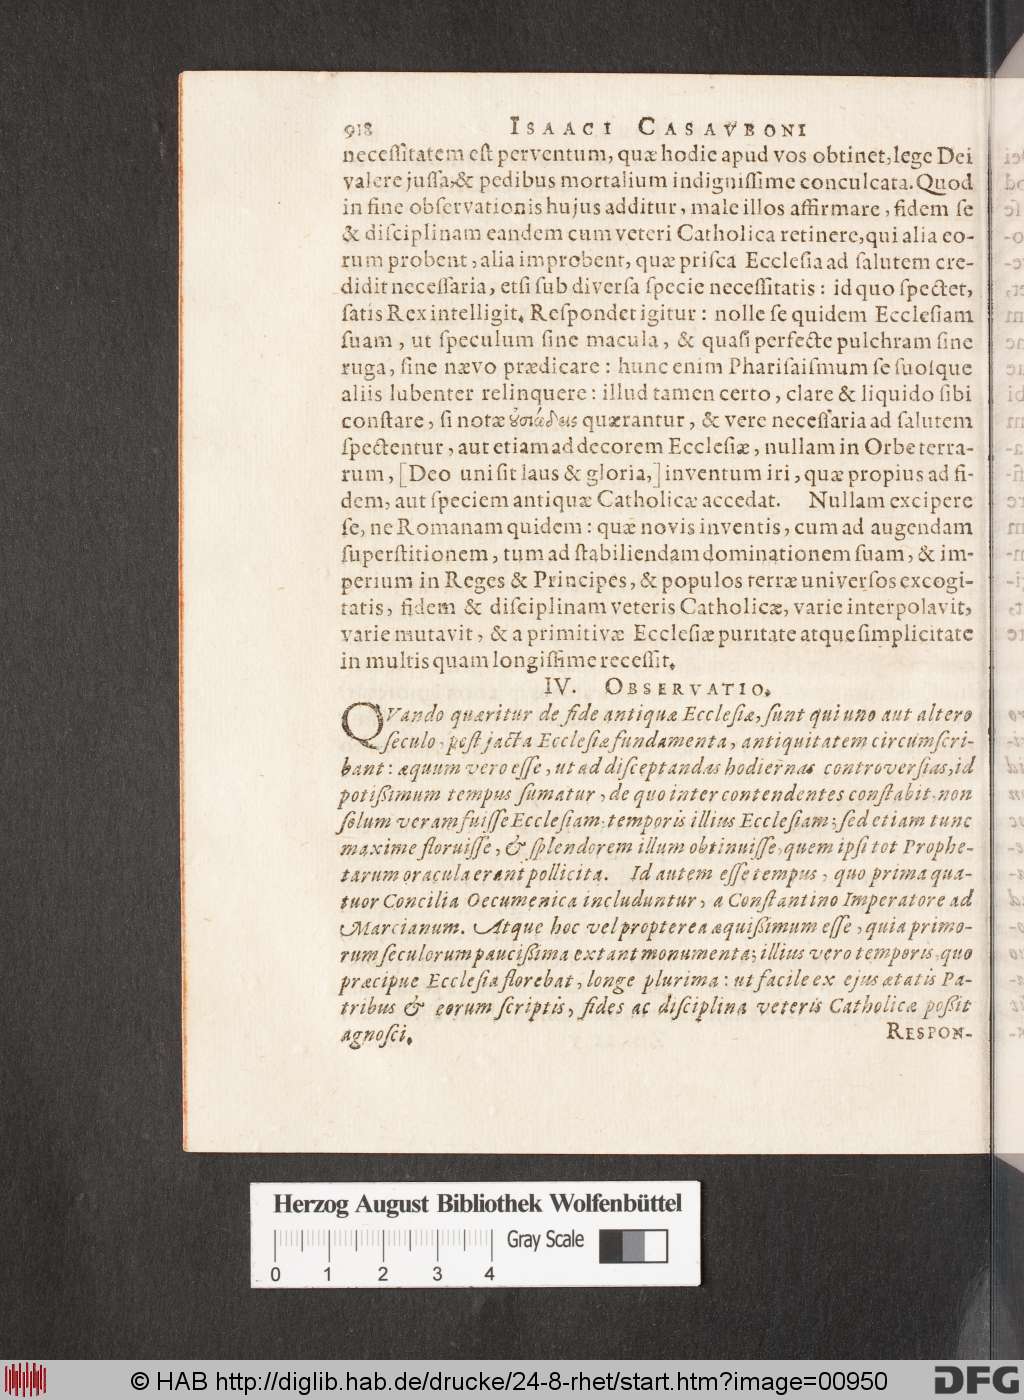 918 ISAACI CASAVBONI
necessitatem est perventum, quæ hodie apud vos obtinet, lege Dei
valere jussa, & pedibus mortalium indignissime conculcata. Quod
in fine observationis hujus additur, male illos affirmare, fidem se
& disciplinam eandem cum veteri Catholica retinere, qui alia eo-
rum probent, alia improbent, quæ prisca Ecclesia ad salutem cre-
didit necessaria, etsi sub diversa specie necessitatis: id quo spectet,
satis Rex intelligit. Respondet igitur: nolle se quidem Ecclesiam
suam, ut speculum sine macula, & quasi perfecte pulchram sine
ruga, sine nævo prædicare: hunc enim Pharisaismum se suosque
aliis lubenter relinquere: illud tamen certo, clare & liquido sibi
constare, si notæ οὐσιώδεις quærantur, & vere necessaria ad salutem
spectentur, aut etiam ad decorem Ecclesiæ, nullam in Orbe terra-
rum, [Deo uni sit laus & gloria,] inventum iri, quæ propius ad fi-
dem, aut speciem antiquæ Catholicæ accedat. Nullam excipere
se, ne Romanam quidem: quæ novis inventis, cum ad augendam
superstitionem, tum ad stabiliendam dominationem suam, & im-
perium in Reges & Principes, & populos terræ universos excogi-
tatis, fidem & disciplinam veteris Catholicæ, varie interpolavit,
varie mutavit, & a primitivæ Ecclesiæ puritate atque simplicitate
in multis quam longissime recessit.
IV. OBSERVATIO.
QVando quæritur de fide antiquæ Ecclesiæ, sunt qui uno aut altero
seculo, post jacta Ecclesiæ fundamenta, antiquitatem circumscri-
bant: æquum vero esse, ut ad disceptandas hodiernas controversias, id
potißimum tempus sumatur, de quo inter contendentes constabit, non
solum veram fuisse Ecclesiam, temporis illius Ecclesiam; sed etiam tunc
maxime floruisse, & splendorem illum obtinuisse, quem ipsi tot Prophe-
tarum oracula erant pollicita. Id autem esse tempus, quo prima qua-
tuor Concilia Oecumenica includuntur, a Constantino Imperatore ad
Marcianum. Atque hoc vel propterea æquißimum esse, quia primo-
rum seculorum paucißima extant monumenta; illius vero temporis, quo
præcipue Ecclesia florebat, longe plurima: ut facile ex ejus ætatis Pa-
tribus & eorum scriptis, fides ac disciplina veteris Catholicæ poßit
agnosci. RESPON-
Herzog August Bibliothek Wolfenbüttel
Gray Scale
0 1 2 3 4
© HAB http://diglib.hab.de/drucke/24-8-rhet/start.htm?image=00950
DFG